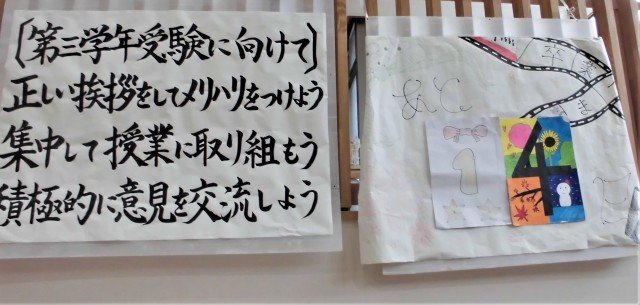 〔第三学年受験に向けて〕
正しい挨拶をしてメリハリをつけよう
集中して授業に取り組もう
積極的に意見を交流しよう
卒業
まで
あと
1 4
日